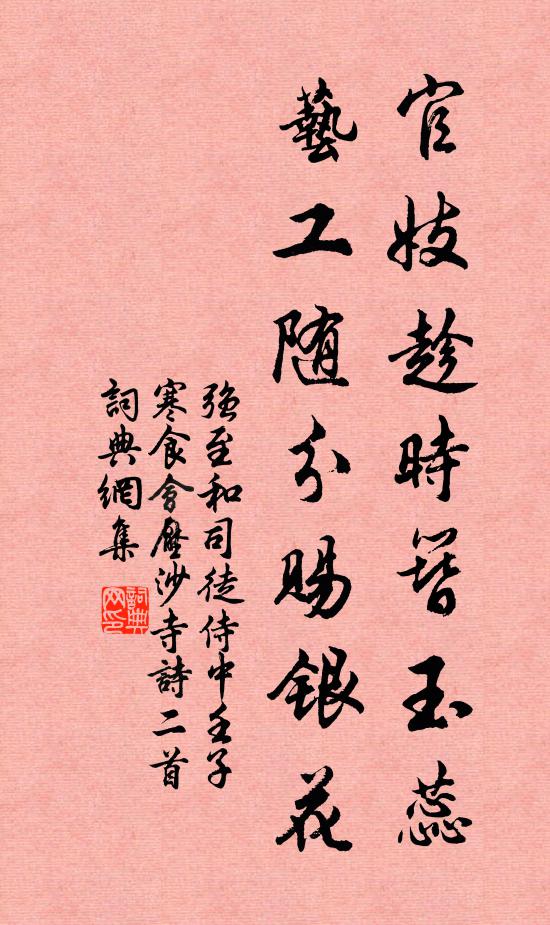 官妓趁時簪玉蕊
藝工随分賜銀花
強至和司徒侍中壬子
寒食會壓沙寺詩二首
詞典網集
詞典
网印